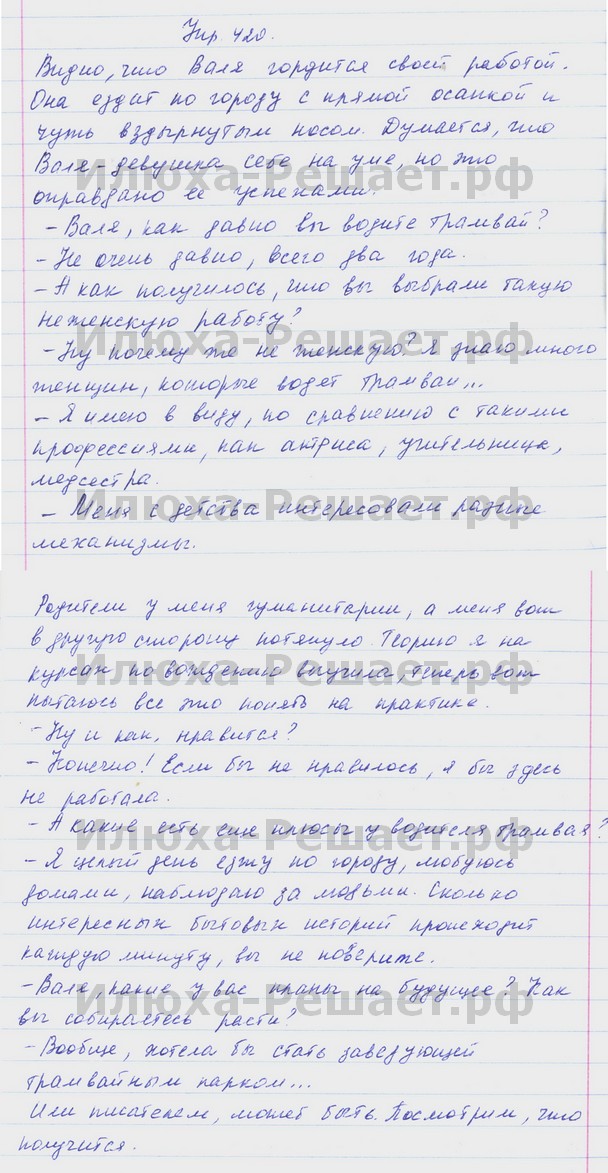 Упр 420.
Видно, что Валя гордится своей работой.
Она ездит по городу с прямой осанкой и
чуть вздёрнутым носом. Думается, что
Валя - девушка себе на уме, но это
Илюха-Решает.рф
оправдано её успехами.
- Валя, как давно вы водите трамвай?
- Не очень давно, всего два года.
- А как получилось, что вы выбрали такую
неженскую работу?
Илюха-Решает.рф
- Ну почему же не женскую? Я знаю много
женщин, которые водят трамваи...
- Я имею в виду, по сравнению с такими
профессиями, как актриса, учительница,
медсестра.
Илюха-Решает.рф
- Меня с детства интересовали разные
механизмы.
Родители у меня гуманитарии, а меня вот
в другую сторону потянуло. Теорию я на
Илюха-Решает.рф
курсах по вождению выучила, теперь вот
пытаюсь все это понять на практике.
- Ну и как, нравится?
- Конечно! Если бы не нравилось, я бы здесь
не работала.
- А какие есть еще плюсы у водителя трамвая?
Илюха-Решает.рф
- Я целый день езжу по городу, любуюсь
домами, наблюдаю за людьми. Сколько
интересных бытовых историй происходит
каждую минуту, вы не поверите.
- Валя, какие у вас планы на будущее? Как
Илюха-Решает.рф
вы собираетесь расти?
- Вообще, хотела бы стать заведующей
трамвайным парком...
Или писателем, может быть. Посмотрим, что
получится.